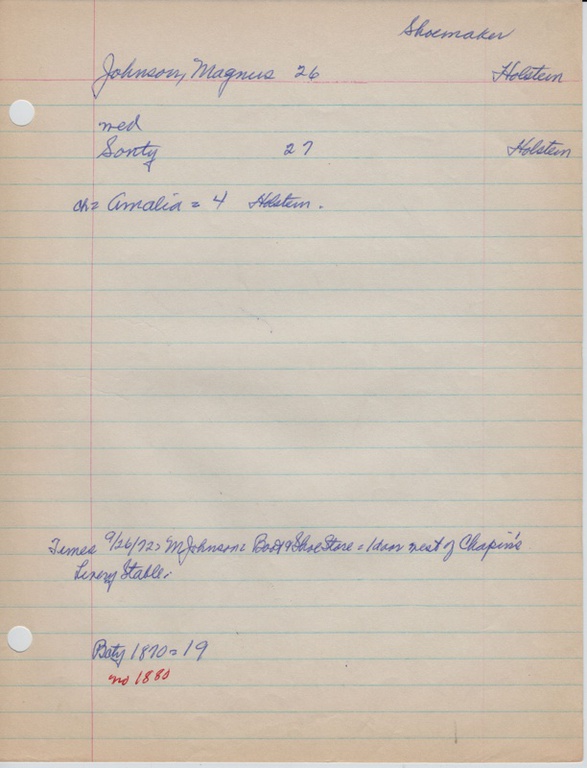 Shoemaker
Johnson, Magnus 26 Holstein
med
Sonty 27 Holstein
ch= Amalia = 4 Holstein.
Times 9/26/72= M Johnson= Boot & Shoe Store = 1 door west of Chapin's
Livery Stable.
Baty 1870= 19
no 1880